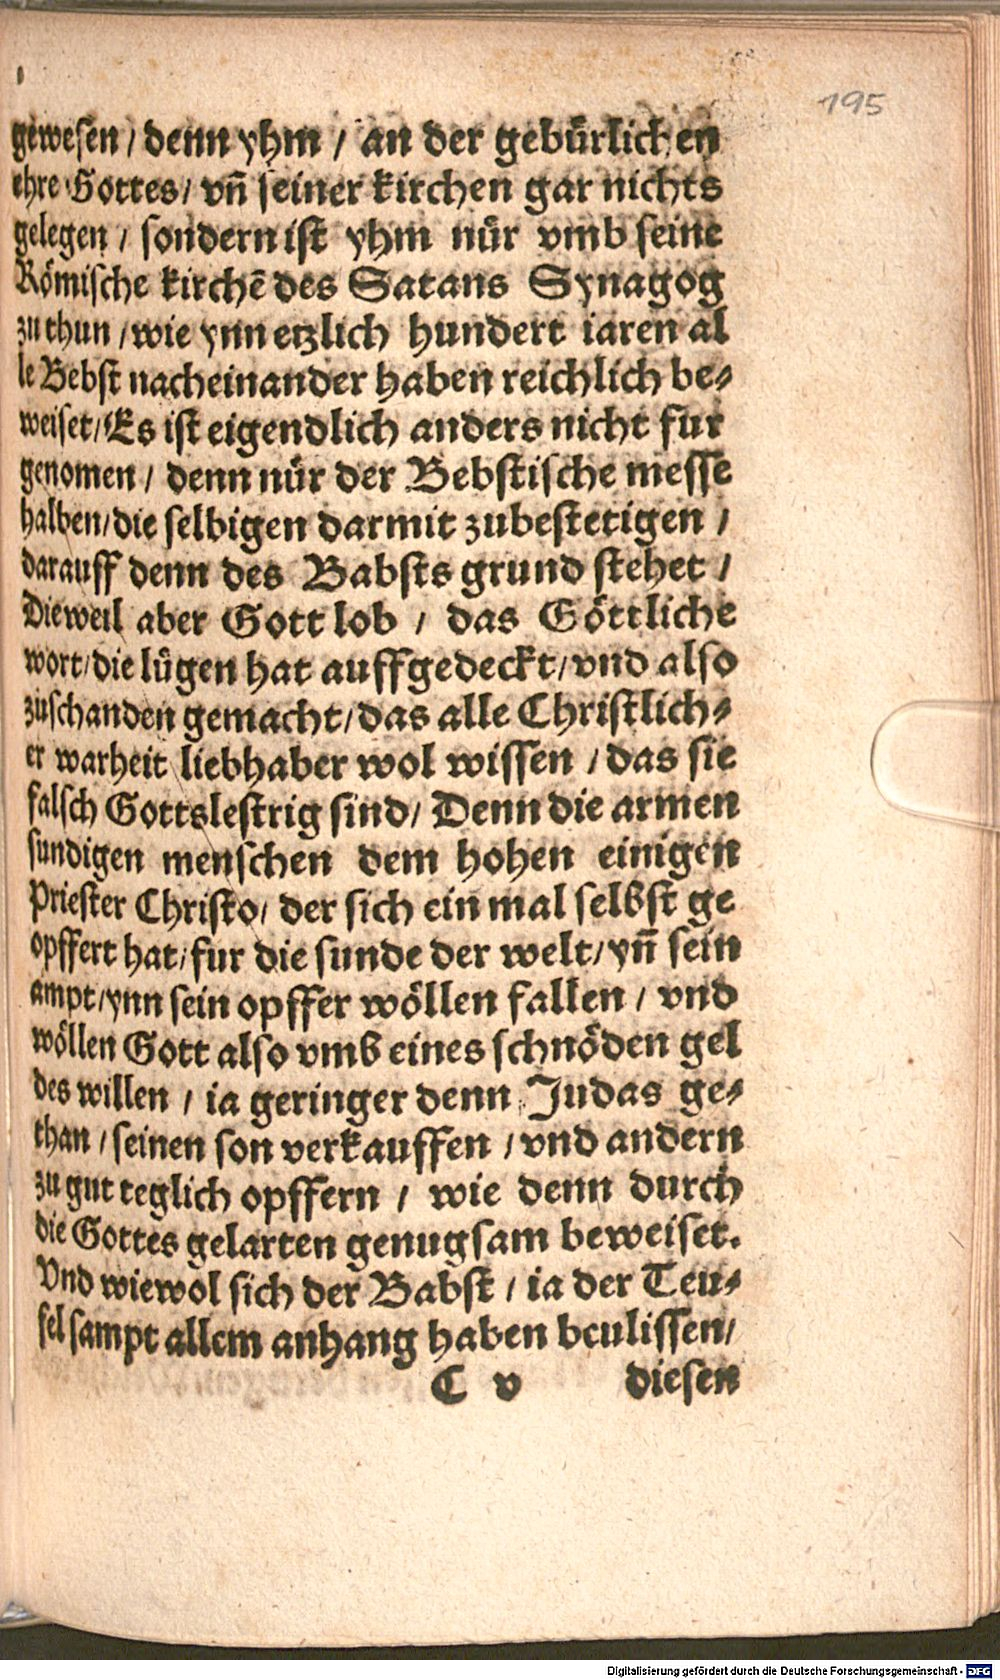 195
gewesen / denn yhm / an der gebürlichen
ehre Gottes / vñ seiner kirchen gar nichts
gelegen / sondern ist yhm nür vmb seine
Römische kirchē des Satans Synagog
zu thun / wie ynn etzlich hundert iaren al
le Bebst nacheinander haben reichlich be⸗
weiset / Es ist eigendlich anders nicht fur
genomen / denn nür der Bebstische messe
halben / die selbigen darmit zubestetigen /
darauff denn des Babsts grund stehet /
Dieweil aber Gott lob / das Göttliche
wort / die lügen hat auffgedeckt / vnd also
zuschanden gemacht / das alle Christlich⸗
er warheit liebhaber wol wissen / das sie
falsch Gottslestrig sind / Denn die armen
sundigen menschen dem hohen einigen
Priester Christo / der sich ein mal selbst ge
opffert hat / fur die sunde der welt / yñ sein
ampt / ynn sein opffer wöllen fallen / vnd
wöllen Gott also vmb eines schnöden gel
des willen / ia geringer denn Judas ge⸗
than / seinen son verkauffen / vnd andern
zu gut teglich opffern / wie denn durch
die Gottes gelarten genugsam beweiset.
Vnd wiewol sich der Babst / ia der Teu⸗
fel sampt allem anhang haben beulissen /
C v diesen
Digitalisierung gefördert durch die Deutsche Forschungsgemeinschaft - DFG